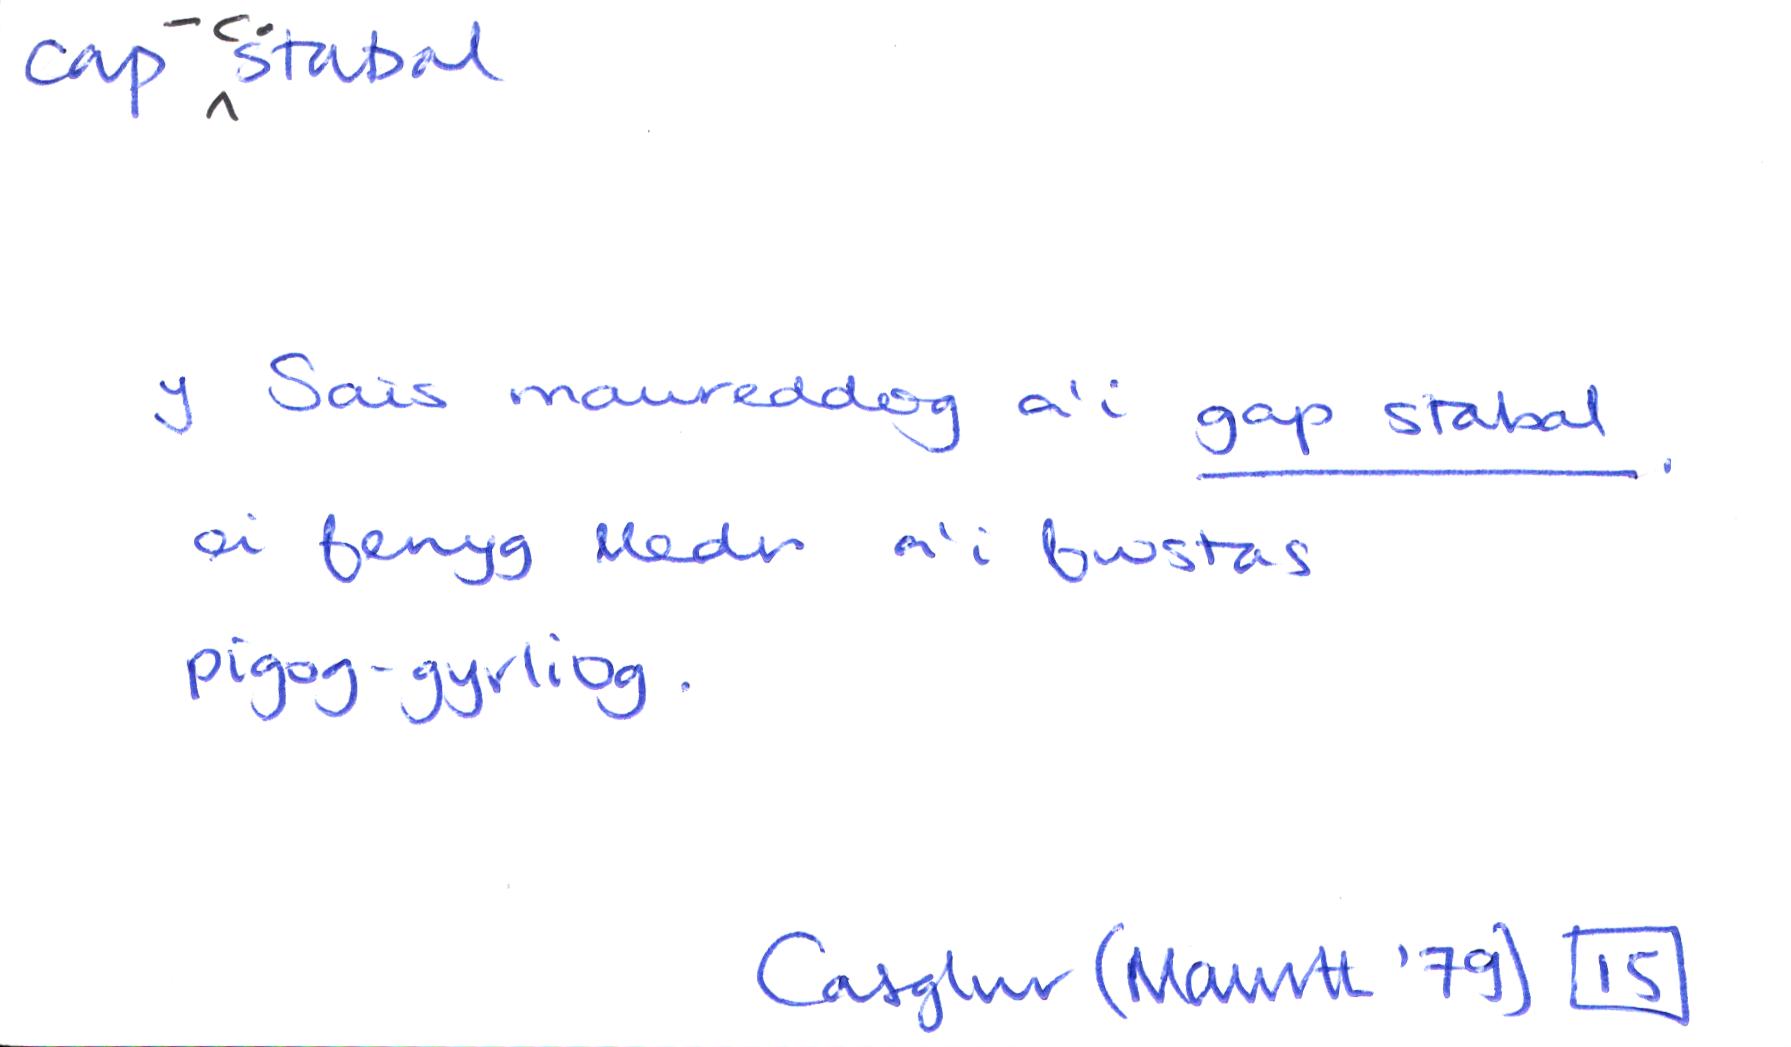 cap - c. stabal
y Sais mawreddog a'i gap stabal.
ei fenyg lledr a'i fwstas
pigog-gyrliog.
Casglwr (Mawrth '79) 15